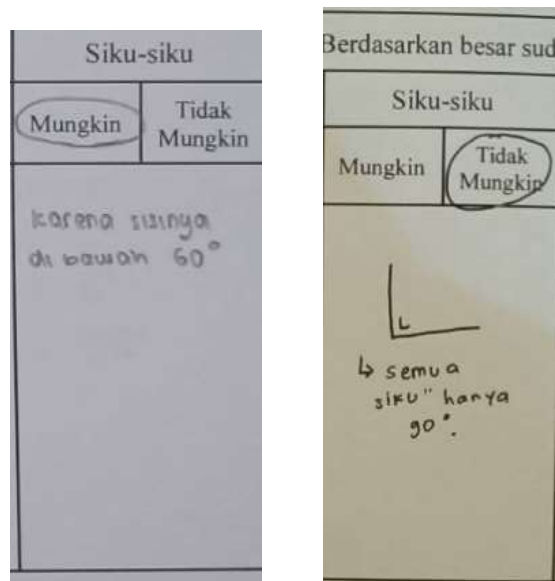 Siku-siku
Mungkin
Tidak
Mungkin
karena sisinya
di bawah 60°
Berdasarkan besar sud
Siku-siku
Mungkin
Tidak
Mungkin
↳ semua
siku" hanya
90°.